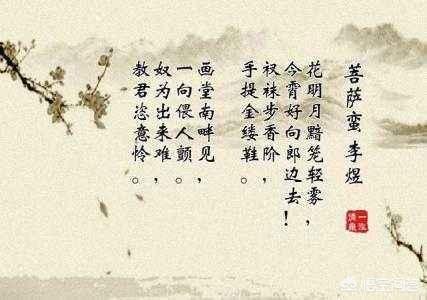 菩萨蛮 李煜
花明月黯笼轻雾，
今霄好向郎边去！
衩袜步香阶，
手提金缕鞋。
画堂南畔见，
一向偎人颤。
奴为出来难
教君恣意怜。
悟空问答